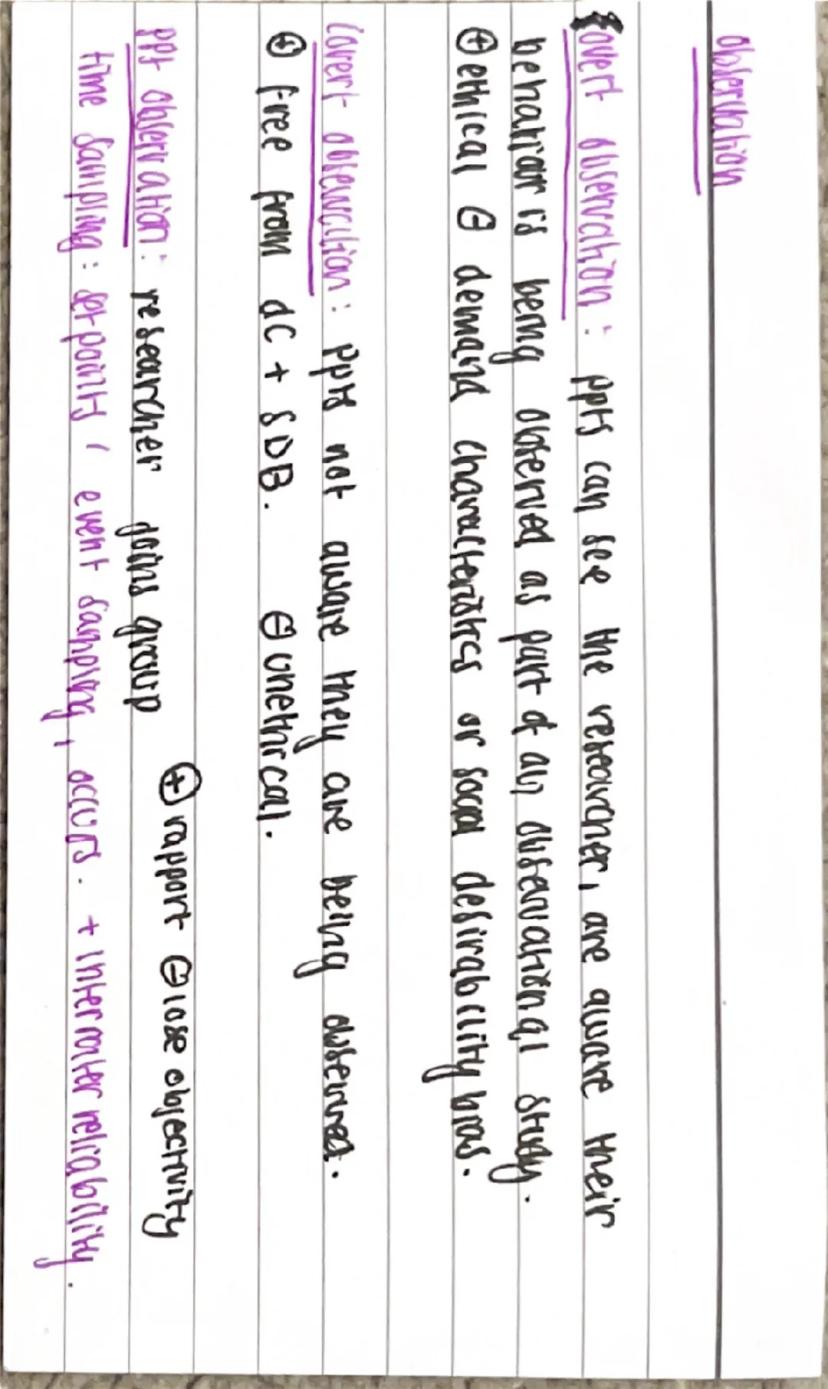 observation
overt observation: ppts can see the researcher, are aware their
behaviour is being observed as part of an observational study.
⊕ ethical ⊖ demand characteristics or social desirability bias.
covert observation: ppts not aware they are being observed.
⊕ free from DC + SDB. ⊖ unethical.
ppt observation: researcher joins group ⊕ rapport ⊖ lose objectivity
time sampling: set points / event sampling, occurs. + inter rater reliability.